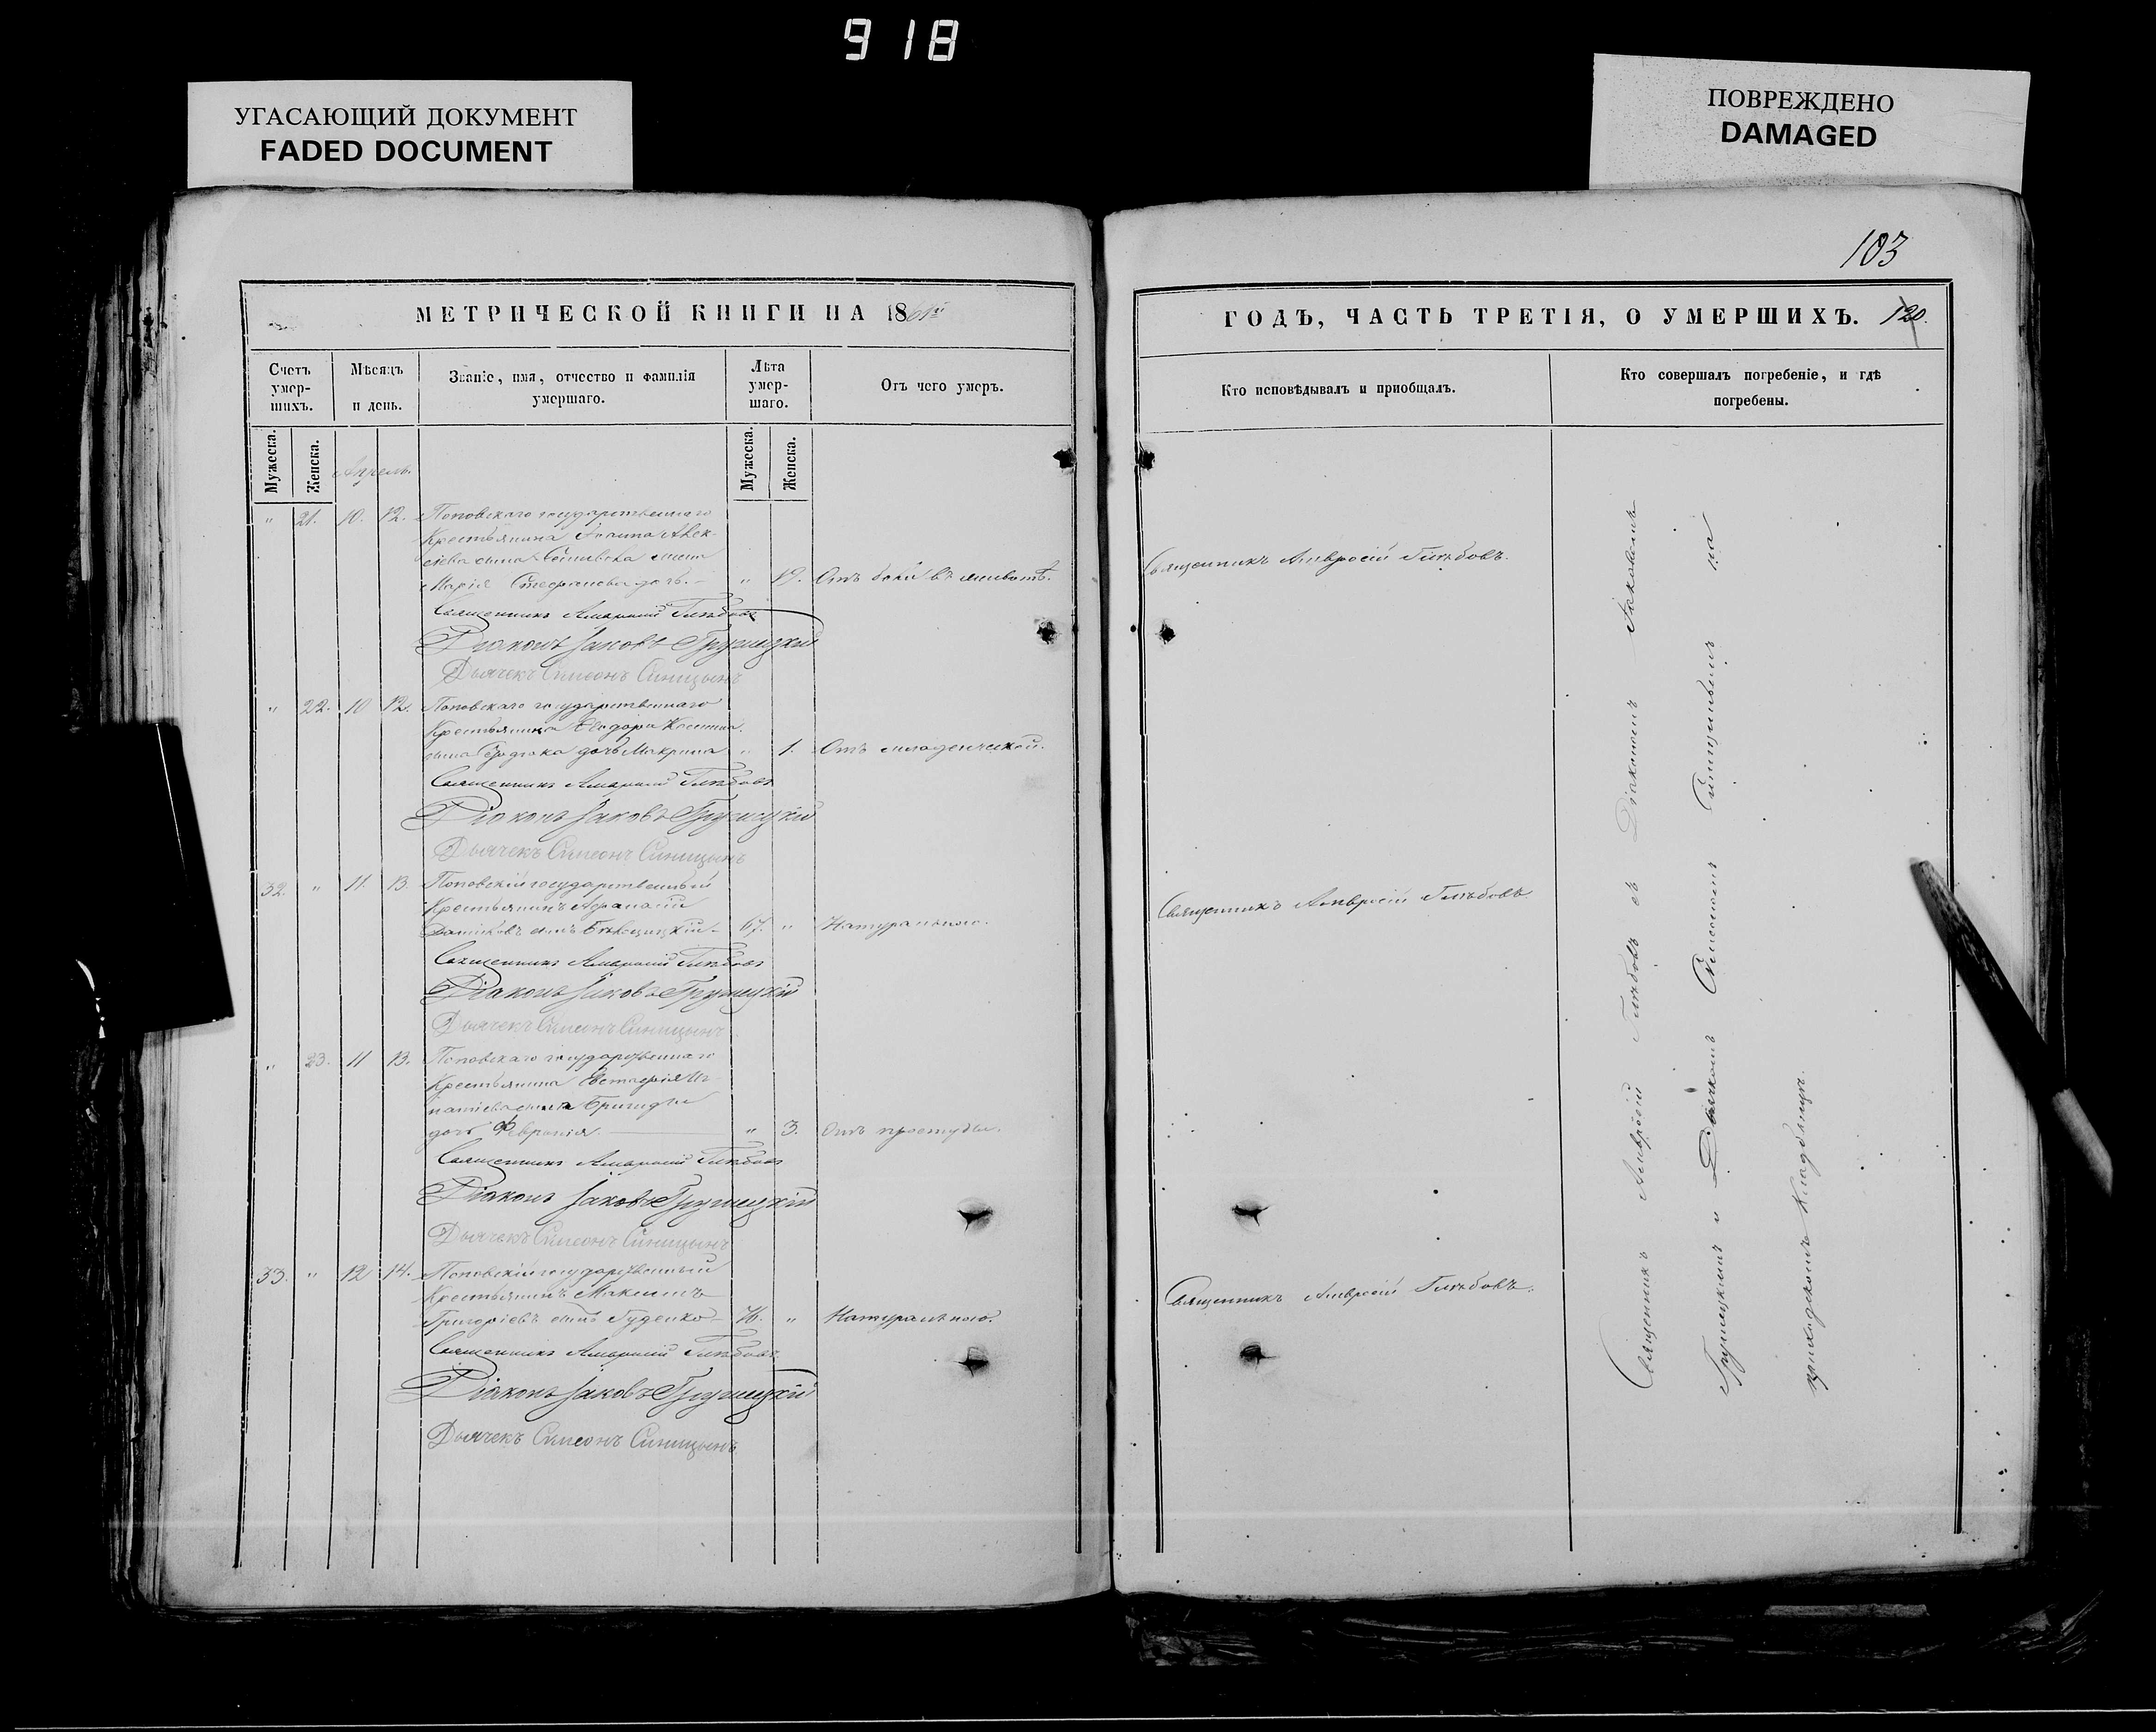 918
УГАСАЮЩИЙ ДОКУМЕНТ
FADED DOCUMENT
ПОВРЕЖДЕНО
DAMAGED
103
МЕТРИЧЕСКОЙ КНИГИ НА 1861й
Счетъ умер-шихъ.
Мѣсяцъ и день.
Званіе, имя, отчество и фамилія умершаго.
Лѣта умер-шаго.
Отъ чего умеръ.
Мужеска.
Женска.
Апрель.
Мужеска.
Женска.
" 21. 10. 12. Поповскаго государственнаго
Крестьянина Алек-
сіева сына жена
Марія Стефанова дочь. " 19. Отъ боли въ животѣ.
Священникъ Амвросій Глѣбовъ
Діаконъ Іаковъ Грушецкій
Дьячекъ Симеонъ Синицынъ
" 22. 10 12. Поповскаго государственнаго
Крестьянина
сына дочь Макрина " 1. Отъ младенческой.
Священникъ Амвросій Глѣбовъ
Діаконъ Іаковъ Грушецкій
Дьячекъ Симеонъ Синицынъ
32. " 11. 13. Поповскій государственный
Крестьянинъ Афанасій
сынъ 67. " Натуральною.
Священникъ Амвросій Глѣбовъ
Діаконъ Іаковъ Грушецкій
Дьячекъ Симеонъ Синицынъ
" 23. 11 13. Поповскаго государственнаго
Крестьянина Евстафія Иг-
натіева сына
дочь Февронія. " 3. Отъ простуды.
Священникъ Амвросій Глѣбовъ
Діаконъ Іаковъ Грушецкій
Дьячекъ Симеонъ Синицынъ
33. " 12 14. Поповскій государственный
Крестьянинъ Максимъ
Григоріевъ сынъ Гуденко 76. " Натуральною.
Священникъ Амвросій Глѣбовъ
Діаконъ Іаковъ Грушецкій
Дьячекъ Симеонъ Синицынъ
ГОДЪ, ЧАСТЬ ТРЕТІЯ, О УМЕРШИХЪ. 120.
Кто исповѣдывалъ и приобщалъ.
Кто совершалъ погребеніе, и гдѣ погребены.
Священникъ Амвросій Глѣбовъ.
Священникъ Амвросій Глѣбовъ.
Священникъ Амвросій Глѣбовъ.
Священникъ Амвросій Глѣбовъ съ Діакономъ Іаковомъ
Грушецкимъ и Дьячкомъ Симеономъ Синицынымъ на
приходскомъ кладбищѣ.